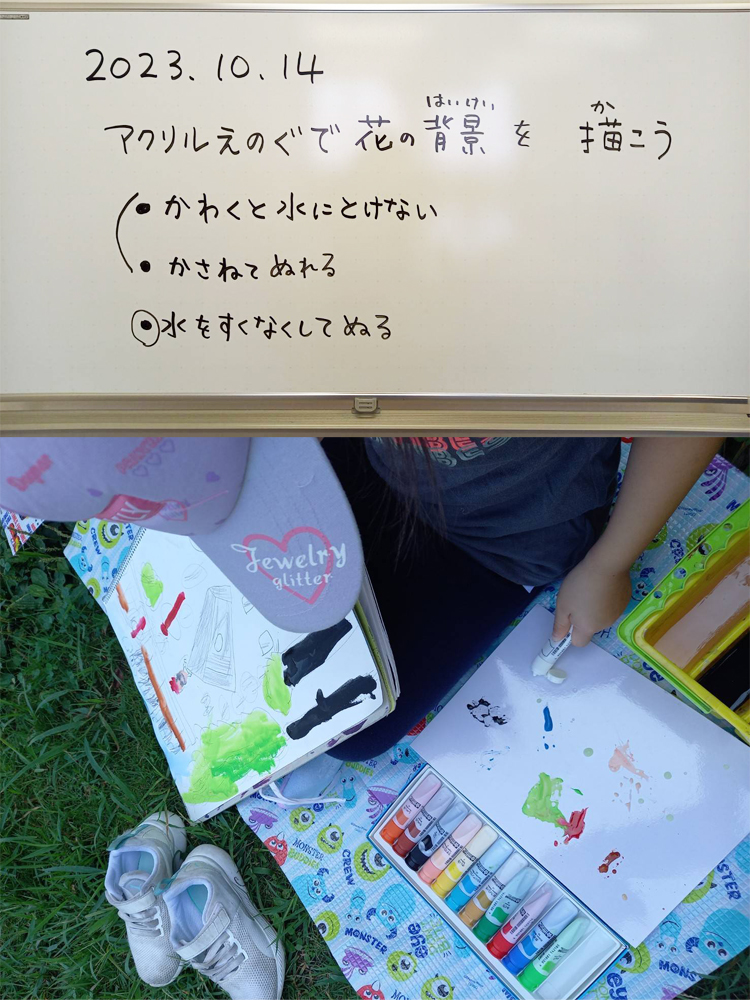 2023.10.14
はいけい か
アクリルえのぐで花の背景を 描こう
• かわくと水にとけない
• かさねてぬれる
• 水をすくなくしてぬる
Jewelry
glitter
CREW
MONSTER
CREW
MONSTER
MONSTER